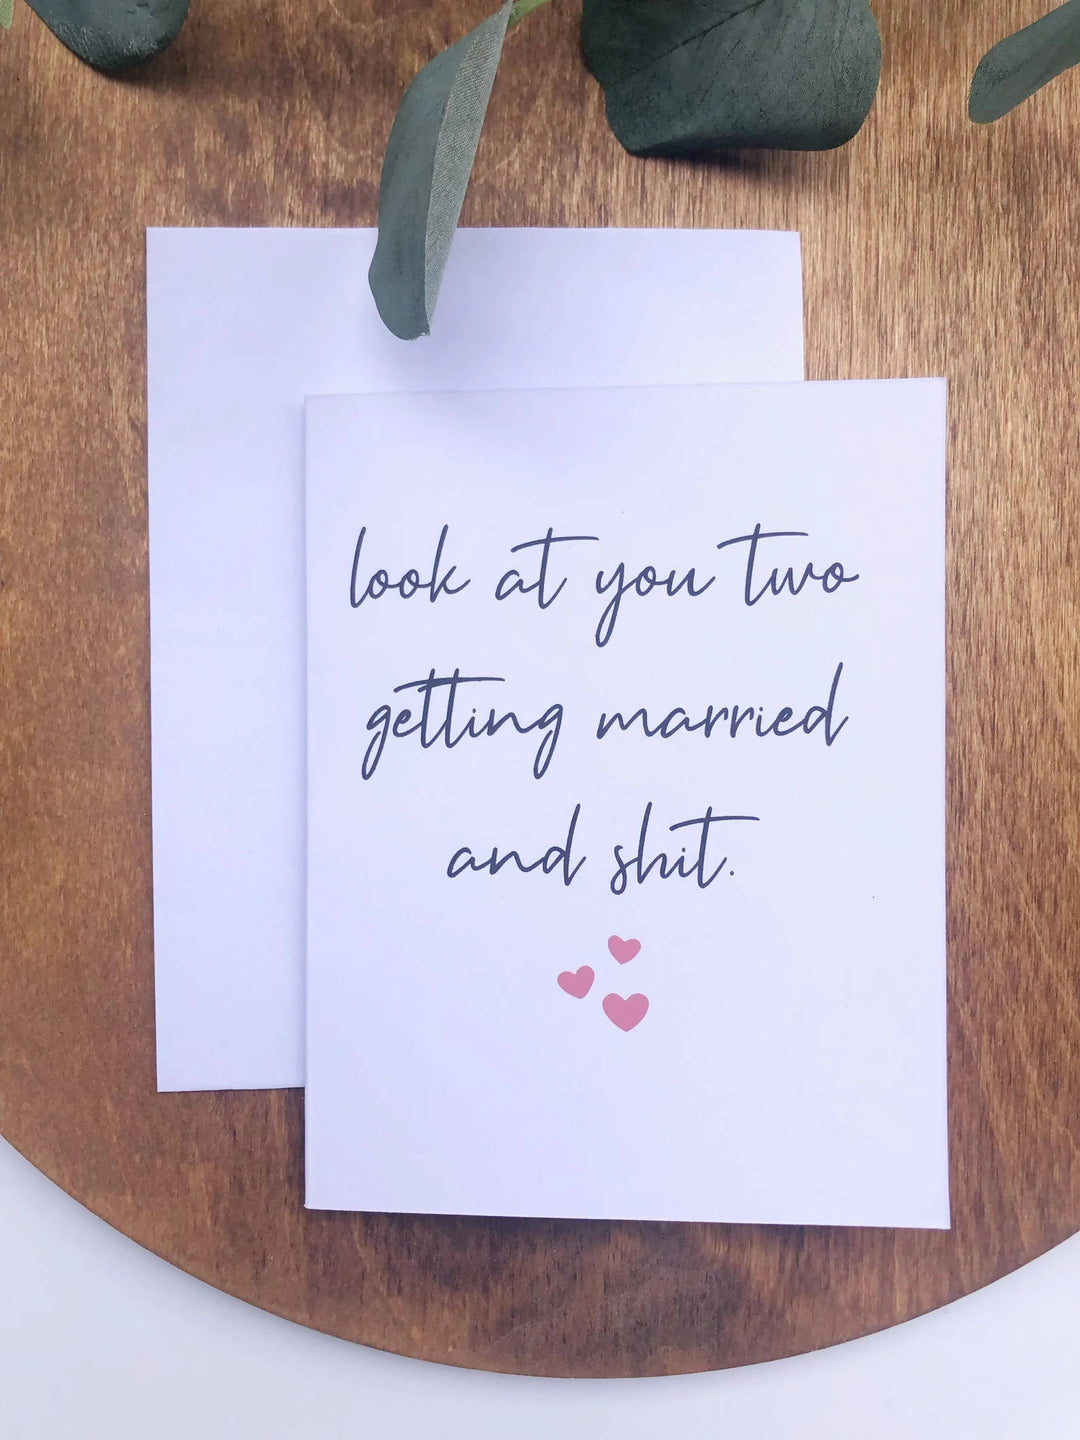 look at you two
getting married
and shit.